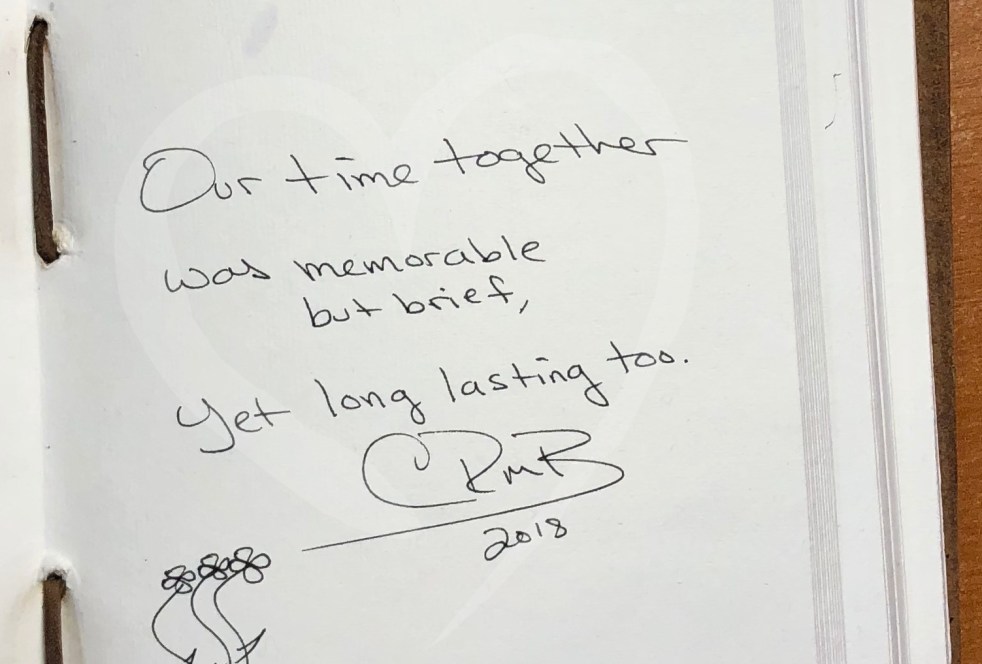 Our time together
was memorable
but brief,
Yet long lasting too.
CRmB
2018